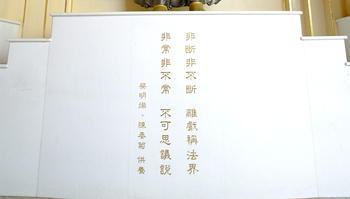 非斷非不斷 離戲稱法界
非常非不常 不可思議說
蔡明端、陳春菊 供養